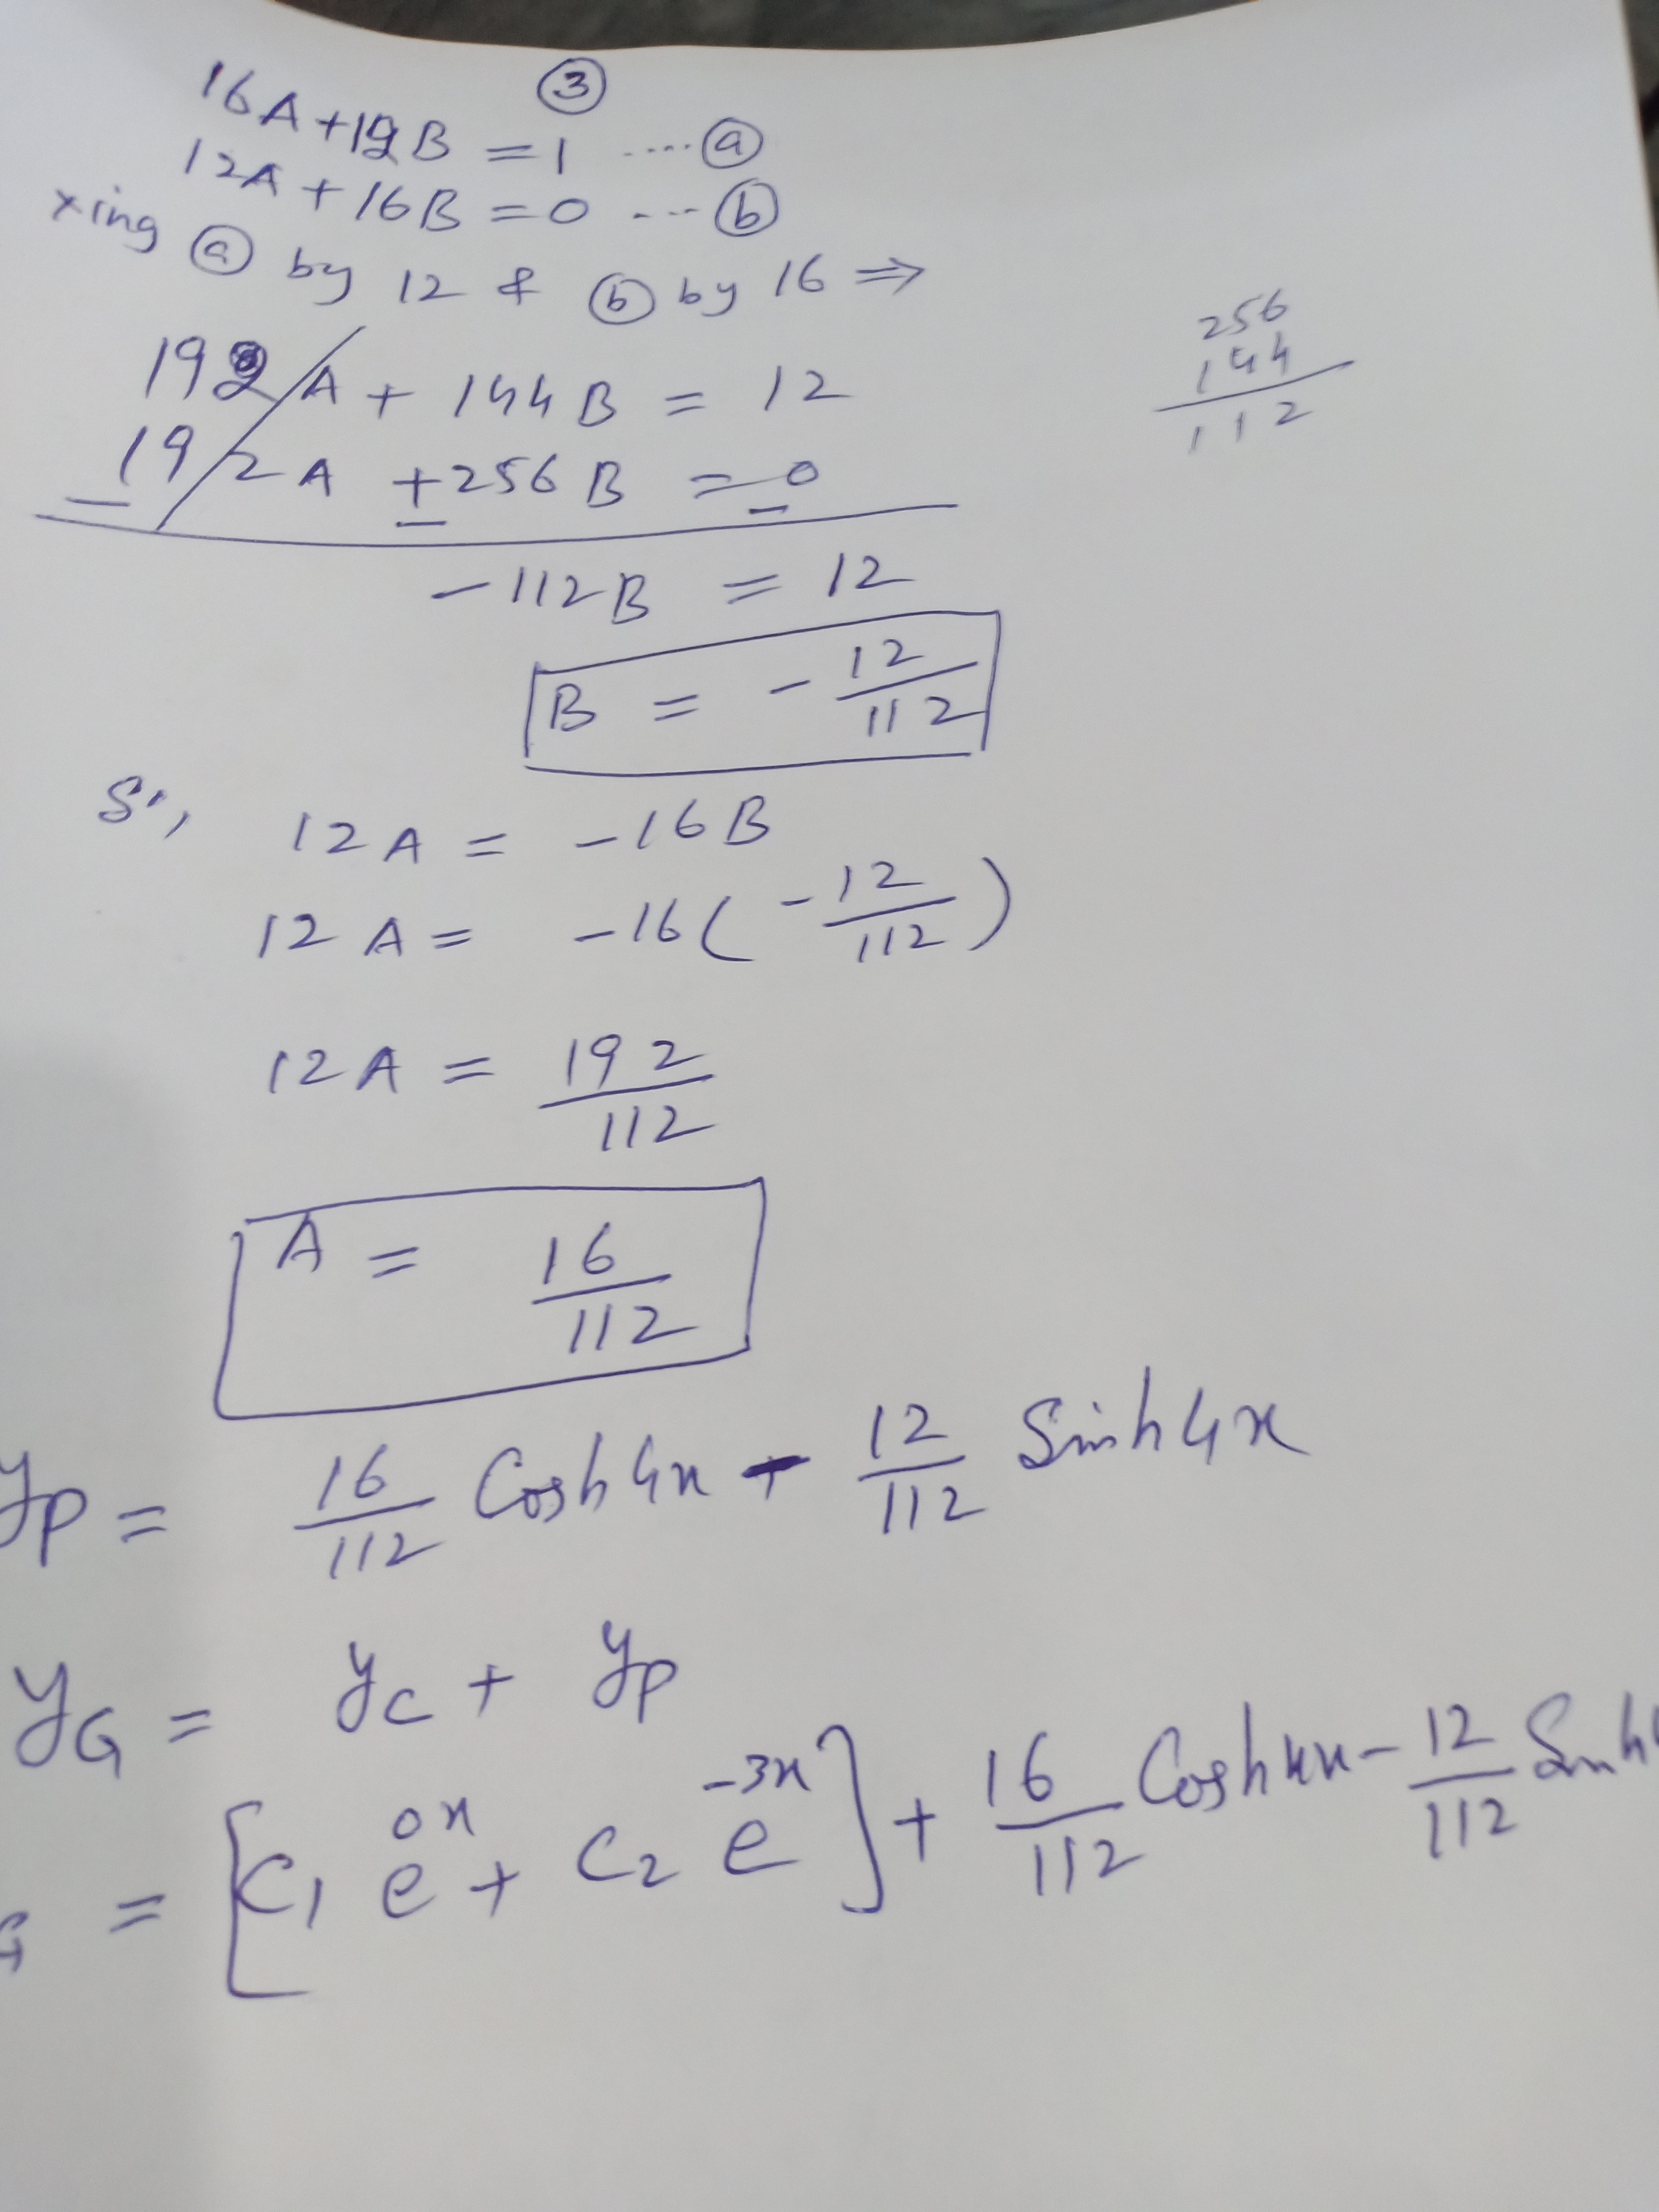 ③
16A+12B = 1 ....ⓐ
12A + 16B = 0 ... ⓑ
xing ⓐ by 12 & ⓑ by 16 ⇒
192A + 144B = 12
192A + 256B = 0
− − −
-112B = 12
B = - 12/112
256
144
112
12A = -16B
12A = -16(-12/112)
12A = 192/112
A = 16/112
yp = 16/112 Cosh4x - 12/112 Sinh4x
yG = yc + yp
G = [C1 e^0x + C2 e^-3x] + 16/112 Cosh4x - 12/112 Sinh